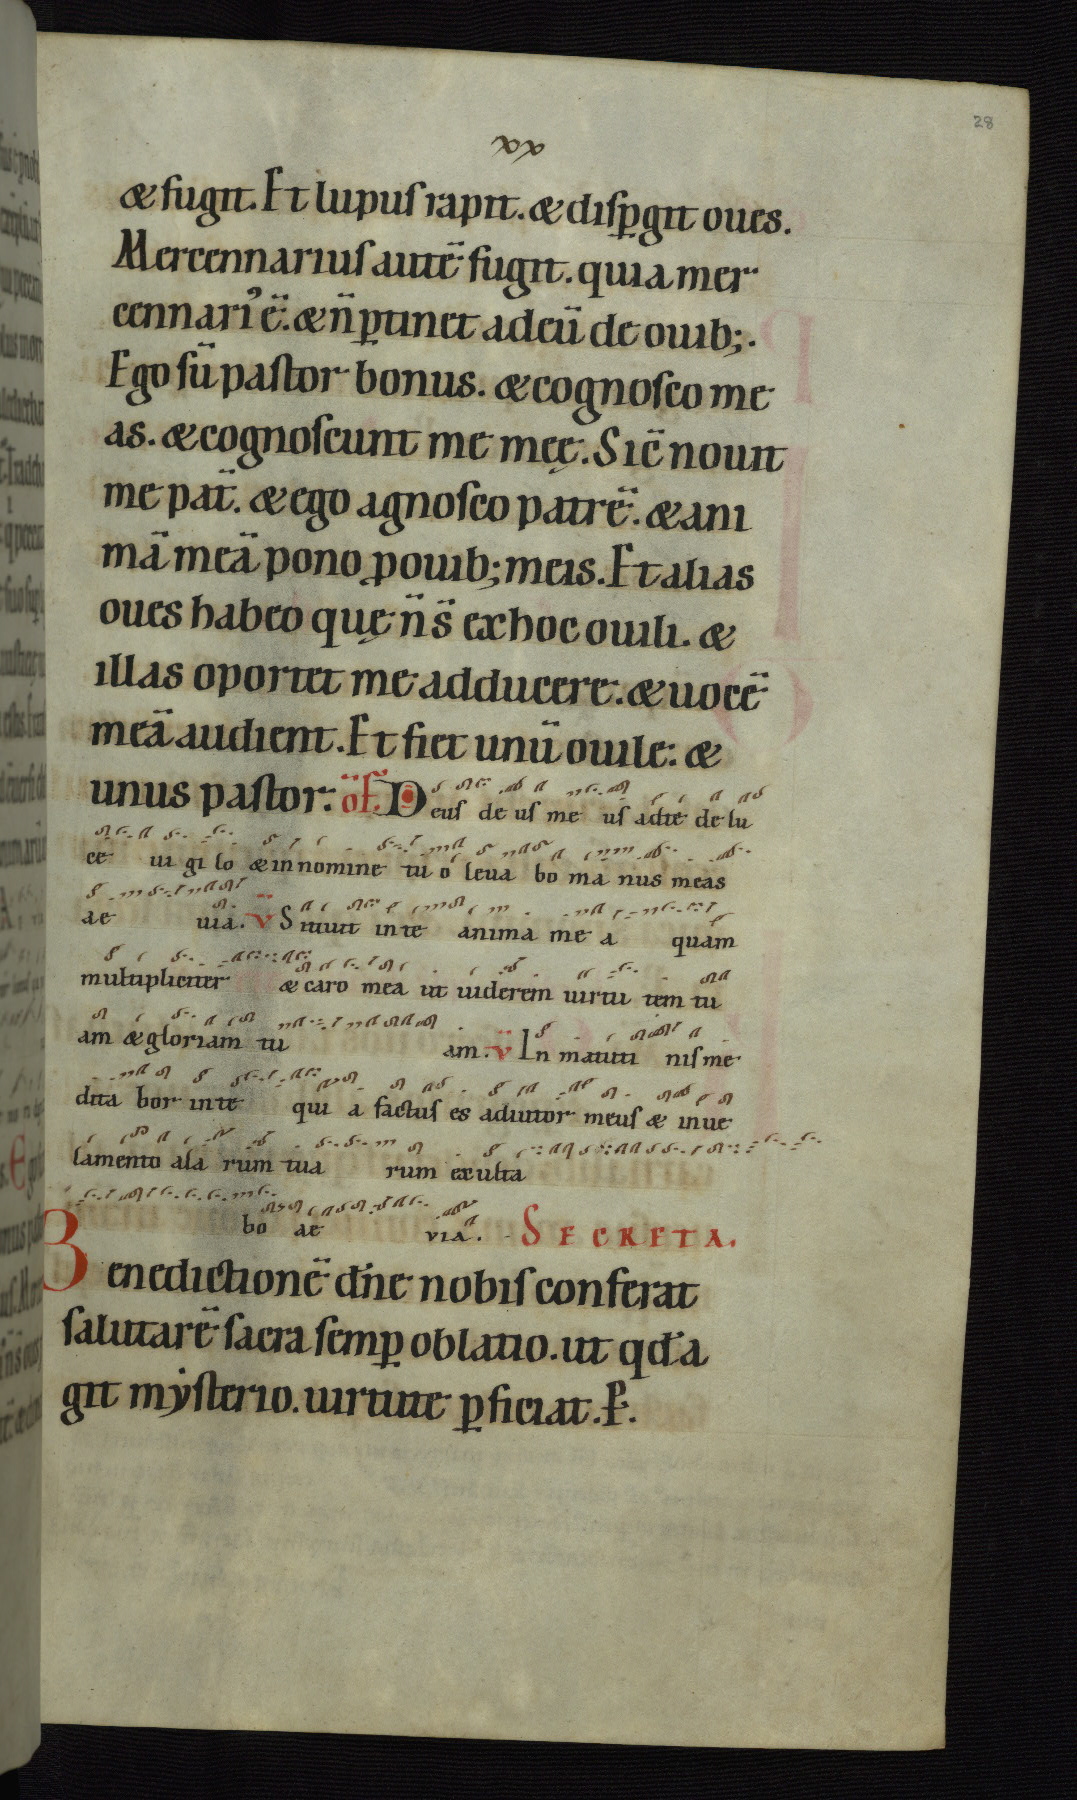 28
xx
& fugit. Et lupus rapit. & disꝑgit oues.
Mercennarius autē fugit. quia mer
cennari᷒ ē. & n̄ ꝑtinet ad eū de ouib;.
Ego sū pastor bonus. & cognosco me
as. & cognoscunt me meę. Sic̄ nouit
me pat̄. & ego agnosco patrē. & ani
mā meā pono ꝓ ouib; meis. Et alias
oues habeo quę n̄ s̄ ex hoc ouili. &
illas oportet me adducere. & uocē
meā audient. Et fiet unū ouile: &
unus pastor: of̄. Deus de us me us adte de lu
ce ui gi lo & in nomine tu o leua bo ma nus meas
ae uia. v̄ Sitiuit in te anima me a quam
multipliciter & caro mea ut uiderem uirtu tem tu
am & gloriam tu am. v̄ In matuti nis me
dita bor in te qui a factus es adiutor meus & in ue
lamento ala rum tua rum exulta
bo ae via. SECRETA.
Benedictionē dn̄e nobis conferat
salutarē sacra semꝑ oblatio. ut qd̄ a
git mẏsterio. uirtute ꝑficiat. P̄.